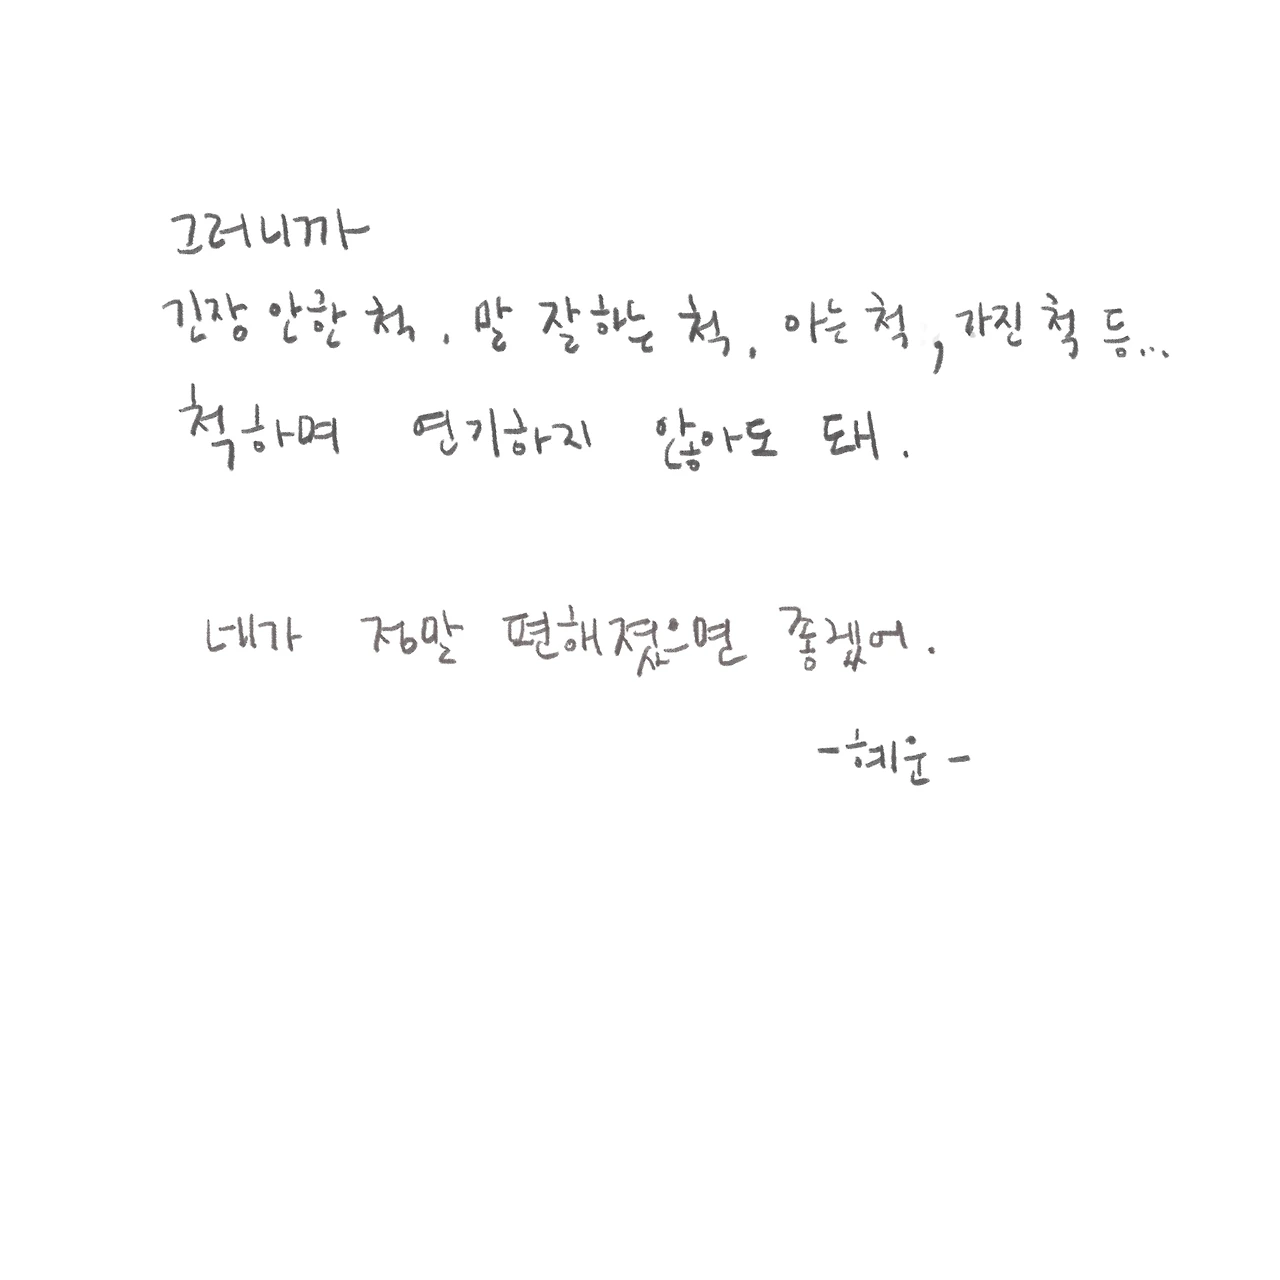 그러니까
긴장 안한 척. 말 잘하는 척. 아는 척, 가진 척 등...
척하며 연기하지 않아도 돼.
네가 정말 편해졌으면 좋겠어.
-혜운-